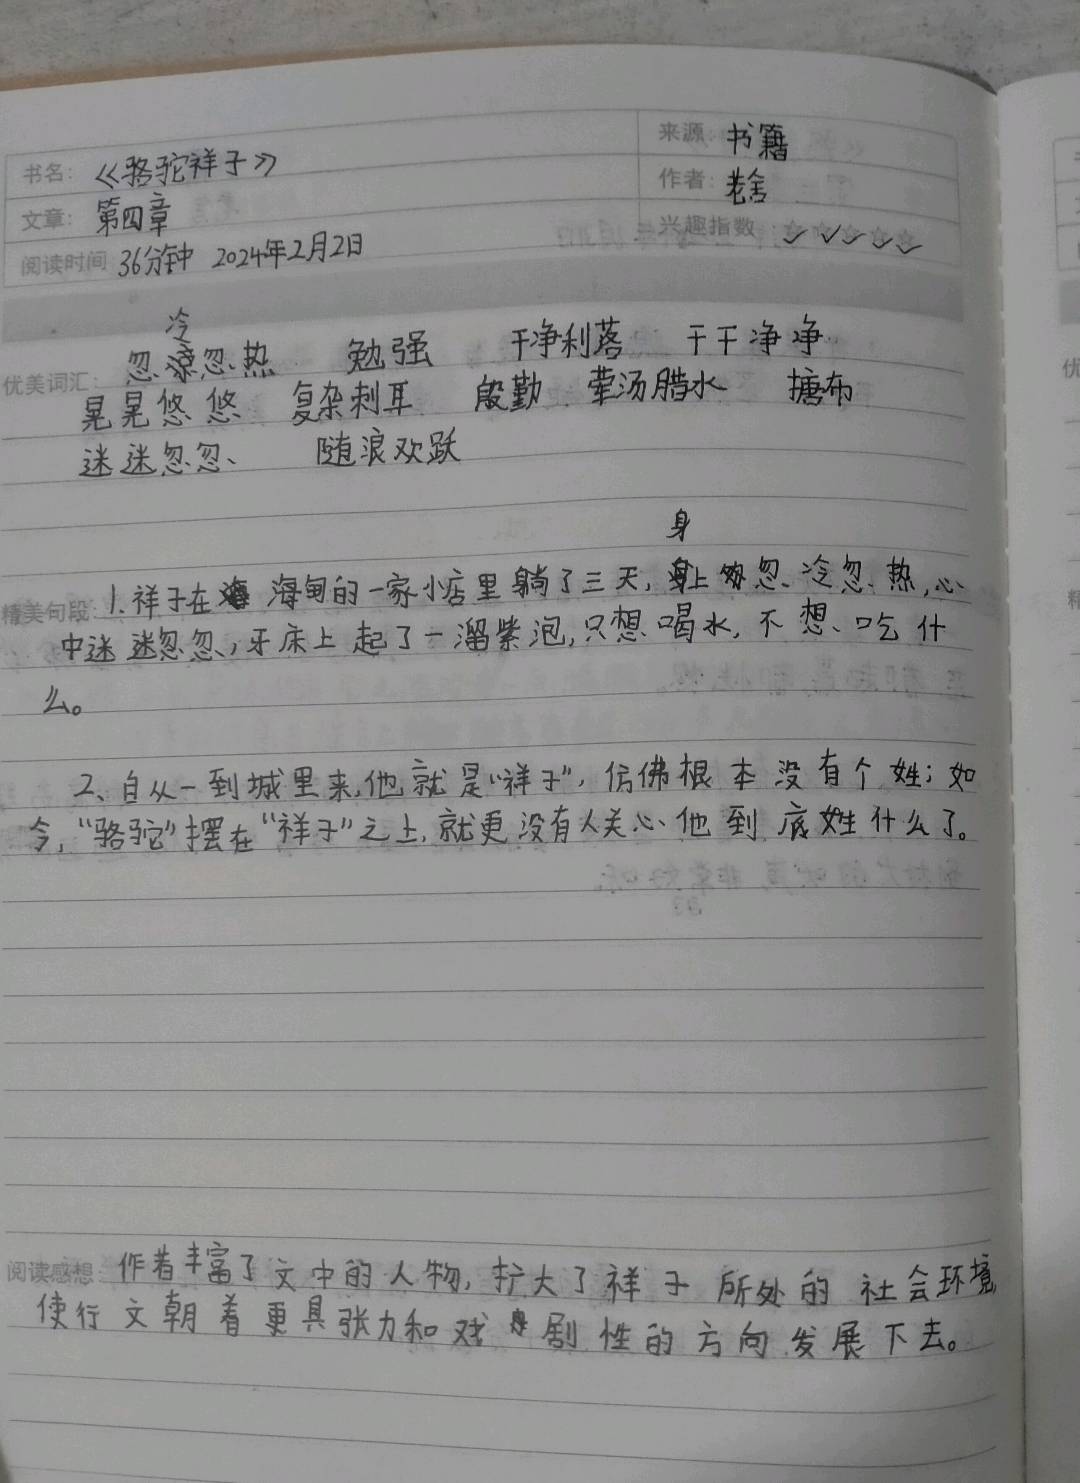 书名: 《骆驼祥子》 来源: 书籍
文章: 第四章 作者: 老舍
阅读时间 36分钟 2024年2月2日 兴趣指数 ✓✓✓✓✓
冷
优美词汇: 忽凉忽热 勉强 干净利落 干干净净
晃晃悠悠 复杂刺耳 殷勤 荤汤腊水 搪布
迷迷忽忽、 随浪欢跃
身
精美句段: 1. 祥子在海甸的一家小店里躺了三天，身上忽冷忽热，心
中迷迷忽忽，牙床上起了一溜紫泡，只想喝水，不想吃什
么。
2、自从一到城里来，他就是“祥子”，仿佛根本没有个姓；如
令，“骆驼”摆在“祥子”之上，就更没有人关心他到底姓什么了。
阅读感想: 作者丰富了文中的人物，扩大了祥子所处的社会环境，
使行文朝着更具张力和戏剧性的方向发展下去。